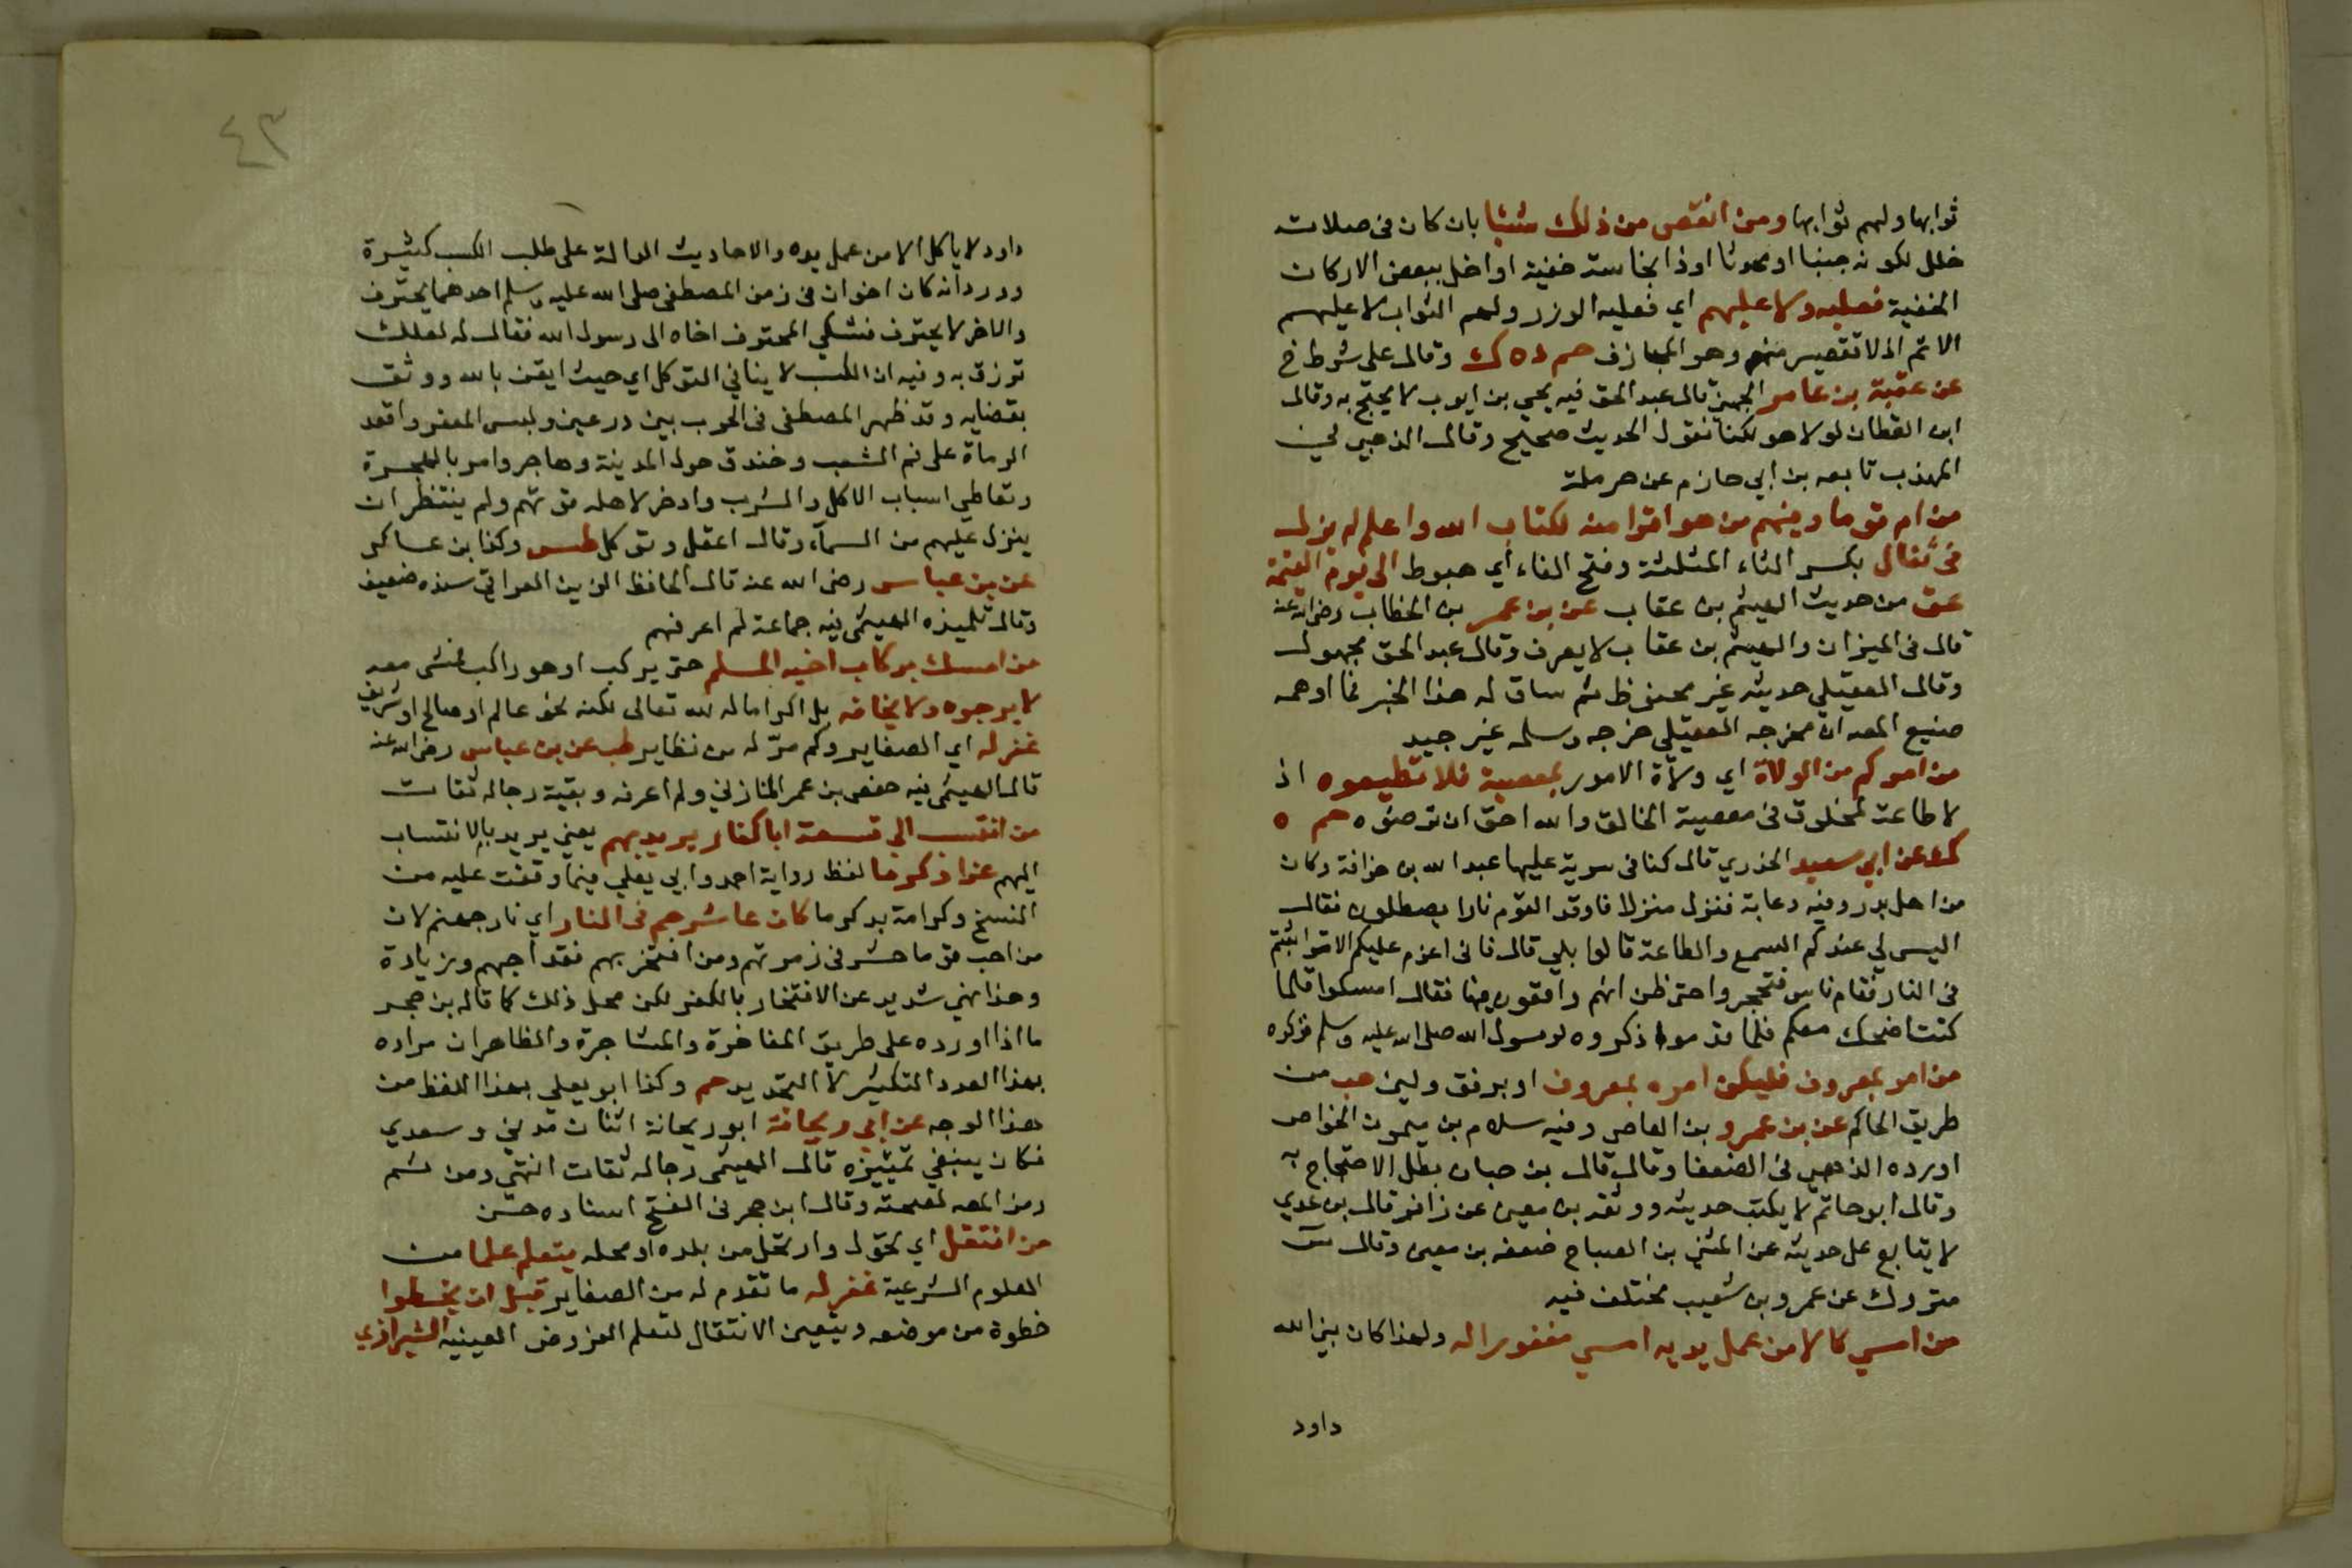 ثوابها ولهم ثوابها ومن انتقص من ذلك شيئا بان كان فى صلاته
خلل لكونه جنبا او محدثا اوذا نجاسة خفية او اخل ببعض الاركان
الخفية فعليه ولا عليهم اي فعليه الوزر ولهم الثواب لا عليهم
الاثم اذ لا تقصير منهم وهو المجازف حم د ه ك وقال على شرط خ
عن عقبة بن عامر الجهني قال عبد الحق فيه يحيى بن ايوب لا يحتج به وقال
ابن القطان لولا هو لكنا نقول الحديث صحيح وقال الذهبي في
المهذب تابعه بن ابي حازم عن حرملة
من ام قوما وفيهم من هو اقرا منه لكتاب الله واعلم لم يزل
فى ثفال بكسر الثاء المثلثة وفتح الفاء اي هبوط الى يوم القيمة
عق من حديث الهيثم بن عقاب عن بن عمر بن الخطاب رضي الله عنه
قال فى الميزان والهيثم بن عقاب لا يعرف وقال عبد الحق مجهول
وقال العقيلي حديثه غير محفوظ ثم ساق له هذا الخبر فما اوهمه
صنيع المصه ان مخرجه العقيلي خرجه وسلمه غير جيد
من امركم من الولاة اي ولاة الامور بمعصية فلا تطيعوه اذ
لا طاعة لمخلوق فى معصية الخالق والله احق ان ترضوه حم ه
ك عن ابي سعيد الخدري قال كنا فى سرية عليها عبد الله بن حذافة وكان
من اهل بدر وفيه دعابة فنزل منزلا فاوقد القوم نارا يصطلون فقال
اليس لي عندكم السمع والطاعة قالوا بلى قال فانى اعزم عليكم الا تواثبتم
فى النار فقام ناس فتحجروا حتى ظن انهم واقعون فيها فقال امسكوا فانما
كنت اضحك معكم فلما قدموا ذكروه لرسول الله صلى الله عليه وسلم فذكره
من امر بمعروف فليكن امره بمعروف اي برفق ولين هب من
طريق الحاكم عن بن عمرو بن العاص وفيه سلام بن ميمون الخواص
اورده الذهبي فى الضعفا وقال قال بن حبان بطل الاحتجاج به
وقال ابو حاتم لا يكتب حديثه ووثقه بن معين عن زافر قال بن عدي
لا يتابع على حديثه عن المثنى بن الصباح ضعفه بن معين وقال س
متروك عن عمرو بن شعيب مختلف فيه
من امسي كالا من عمل يديه امسي مغفورا له ولهذا كان نبي الله
داود
٤٣
داود لا ياكل الا من عمل يده والاحاديث الدالة على طلب الكسب كثيرة
وورد انه كان اخوان فى زمن المصطفى صلى الله عليه وسلم احدهما يحترف
والاخر لا يحترف فشكي المحترف اخاه الى رسول الله فقال له لعلك
ترزق به وفيه ان الكسب لا ينافي التوكل اي حيث ايقن بالله ووثق
بقضايه وقد ظهر المصطفى فى الحرب بين درعين ولبس المغفر واقعد
الرماة على فم الشعب وخندق حول المدينة وهاجر وامر بالهجرة
وتعاطى اسباب الاكل والشرب وادخر لاهله قوتهم ولم ينتظر ان
ينزل عليهم من السمآء وقال اعقل وتوكل طس وكذا بن عساكر
عن بن عباس رضى الله عنه قال الحافظ الزين العراقي سنده ضعيف
وقال تلميذه الهيثمى فيه جماعة لم اعرفهم
من امسك بركاب اخيه المسلم حتى يركب او هو راكب فمشى معه
لا يرجوه ولا يخافه بل اكراما له لله تعالى لكنه نحو عالم او صالح او شريف
غفر له اي الصغاير وكم مرّ له من نظاير طب عن بن عباس رضى الله عنه
قال الهيثمى فيه حفص بن عمر المازني ولم اعرفه وبقية رجاله ثقات
من انتسب الي تسعة اباء كفار يريد بهم يعني يريد بالانتساب
اليهم عزا وكرما لفظ رواية احمد وابي يعلي فيما وقفت عليه من
النسخ وكرامة بدل كرما كان عاشرهم فى النار اي نار جهنم لان
من احب قوما حشر فى زمرتهم ومن افتخر بهم فقد احبهم وزيادة
وهذا نهي شديد عن الافتخار بالكفر لكن محل ذلك كما قاله بن حجر
ما اذا اورده على طريق المفاخرة والمشاجرة والظاهر ان مراده
بهذا العدد التكثير لا التحديد حم وكذا ابو يعلي بهذا اللفظ من
هذا الوجه عن ابي ريحانة ابو ريحانة اثنان مدني وسعدي
فكان ينبغي تمييزه قال الهيثمى رجاله ثقات انتهى ومن ثم
رمز المصه لصحته وقال ابن حجر فى الفتح اسناده حسن
من انتقل اي تحول وارتحل من بلده او محله يتعلم علما من
العلوم الشرعية غفر له ما تقدم له من الصغاير قبل ان يخطوا
خطوة من موضعه ويتعين الانتقال لتعلم الفروض العينيه الشيرازي